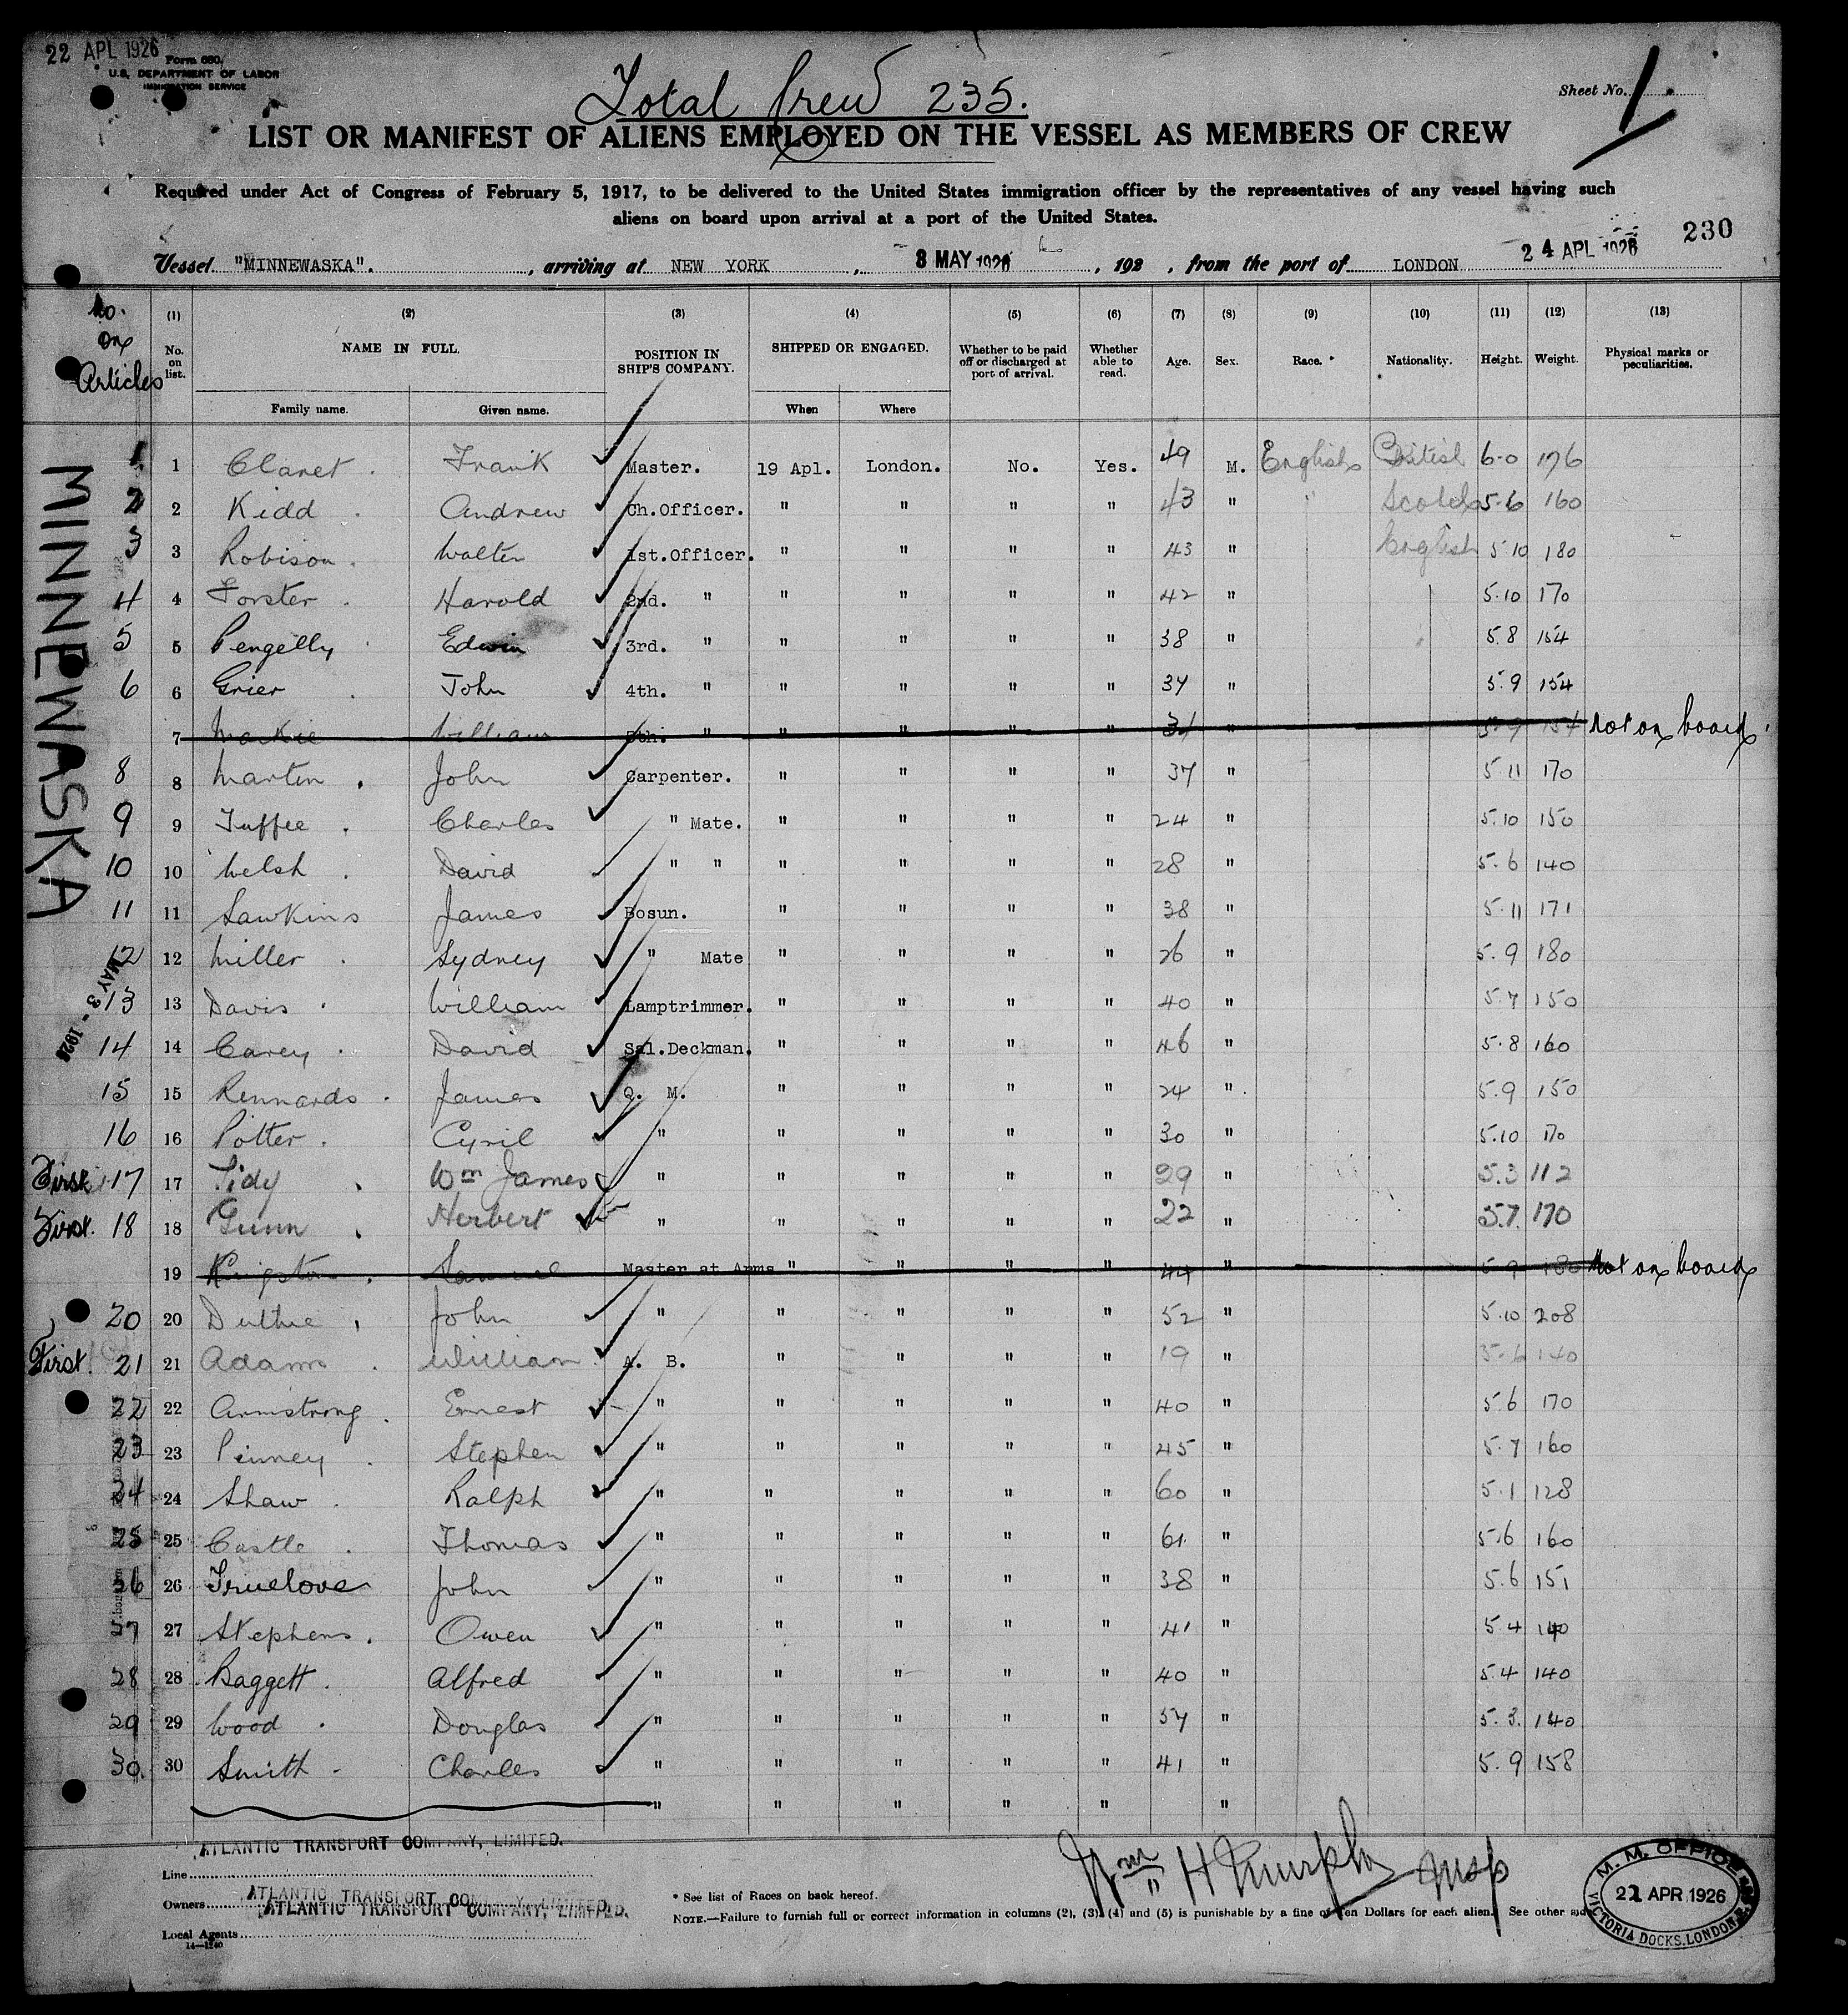 22 APL 1926
Form 680.
U.S. DEPARTMENT OF LABOR
IMMIGRATION SERVICE
Total Crew 235.
Sheet No. 1
LIST OR MANIFEST OF ALIENS EMPLOYED ON THE VESSEL AS MEMBERS OF CREW
Required under Act of Congress of February 5, 1917, to be delivered to the United States immigration officer by the representatives of any vessel having such
aliens on board upon arrival at a port of the United States.
230
Vessel "MINNEWASKA"., arriving at NEW YORK, 3 MAY 1926, 192 , from the port of LONDON 24 APL 1926
No. on Articles
(1) (2) (3) (4) (5) (6) (7) (8) (9) (10) (11) (12) (13)
No. on list. NAME IN FULL. POSITION IN SHIP'S COMPANY. SHIPPED OR ENGAGED. Whether to be paid off or discharged at port of arrival. Whether able to read. Age. Sex. Race.* Nationality. Height. Weight. Physical marks or peculiarities.
Family name. Given name. When Where
MINNEWASKA
MAY 3 - 1926
1 1 Claret. Frank Master. 19 Apl. London. No. Yes. 49 M. English British 6-0 176
2 2 Kidd. Andrew Ch.Officer. " " " " 43 " " Scotch 5-6 160
3 3 Robison. Walter 1st.Officer. " " " " 43 " English 5 10 180
4 4 Forster. Harold 2nd. " " " " " 42 " 5.10 170
5 5 Pengelly Edwin 3rd. " " " " " 38 " 5.8 154
6 6 Grier. John 4th. " " " " " 37 " 5.9 154
7 Mackie William 5th. " " " " " " 5.9 154 Not on board.
8 8 Martin. John Carpenter. " " " " 37 " 5 11 170
9 9 Tuffee. Charles " Mate. " " " " 24 " 5.10 150
10 10 Welsh. David " " " " " " 28 " 5.6 140
11 11 Sawkins James Bosun. " " " " 38 " 5.11 171
12 12 Miller. Sydney " Mate " " " " 26 " 5.9 180
13 13 Davis. William Lamptrimmer. " " " " 40 " 5.7 150
14 14 Carey. David Sal.Deckman. " " " " 46 " 5.8 160
15 15 Rennards. James Q. M. " " " " 24 " 5.9 150
16 16 Potter. Cyril " " " " " 30 " 5.10 170
First 17 17 Tidy. Wm James " " " " " 29 " 5.3 112
First. 18 18 Gunn. Herbert " " " " " 22 " 5.7. 170
19 Kingston. Samuel Master at Arms " " " " 44 " 5.9 180 Not on board
20 20 Duthie. John " " " " " 52 " 5.10 208
First. 21 21 Adams. William. A. B. " " " " 19 " 5.6 140
22 22 Armstrong. Ernest " " " " " 40 " 5.6 170
23 23 Pinney. Stephen " " " " " 45 " 5.7 160
24 24 Shaw. Ralph " " " " " 60 " 5.1 128
25 25 Castle. Thomas " " " " " 61. " 5.6 160
26 26 Truelove John " " " " " 38 " 5.6 151
27 27 Stephens. Owen " " " " " 41 " 5 4 140
28 28 Baggett. Alfred " " " " " 40 " 5.4 140
29 29 Wood. Douglas " " " " " 57 " 5.3. 140
30. 30 Smith. Charles " " " " " 41 " 5.9 158
" " " " " "
ATLANTIC TRANSPORT COMPANY, LIMITED.
Line
Owners ATLANTIC TRANSPORT COMPANY, LIMITED.
ATLANTIC TRANSPORT COMPANY, LIMITED.
Local Agents
14—1240
Wm H Murphy Insp
* See list of Races on back hereof.
NOTE.—Failure to furnish full or correct information in columns (2), (3), (4) and (5) is punishable by a fine of Ten Dollars for each alien. See other side
M. M. OFFICE
22 APR 1926
VICTORIA DOCKS, LONDON, E.